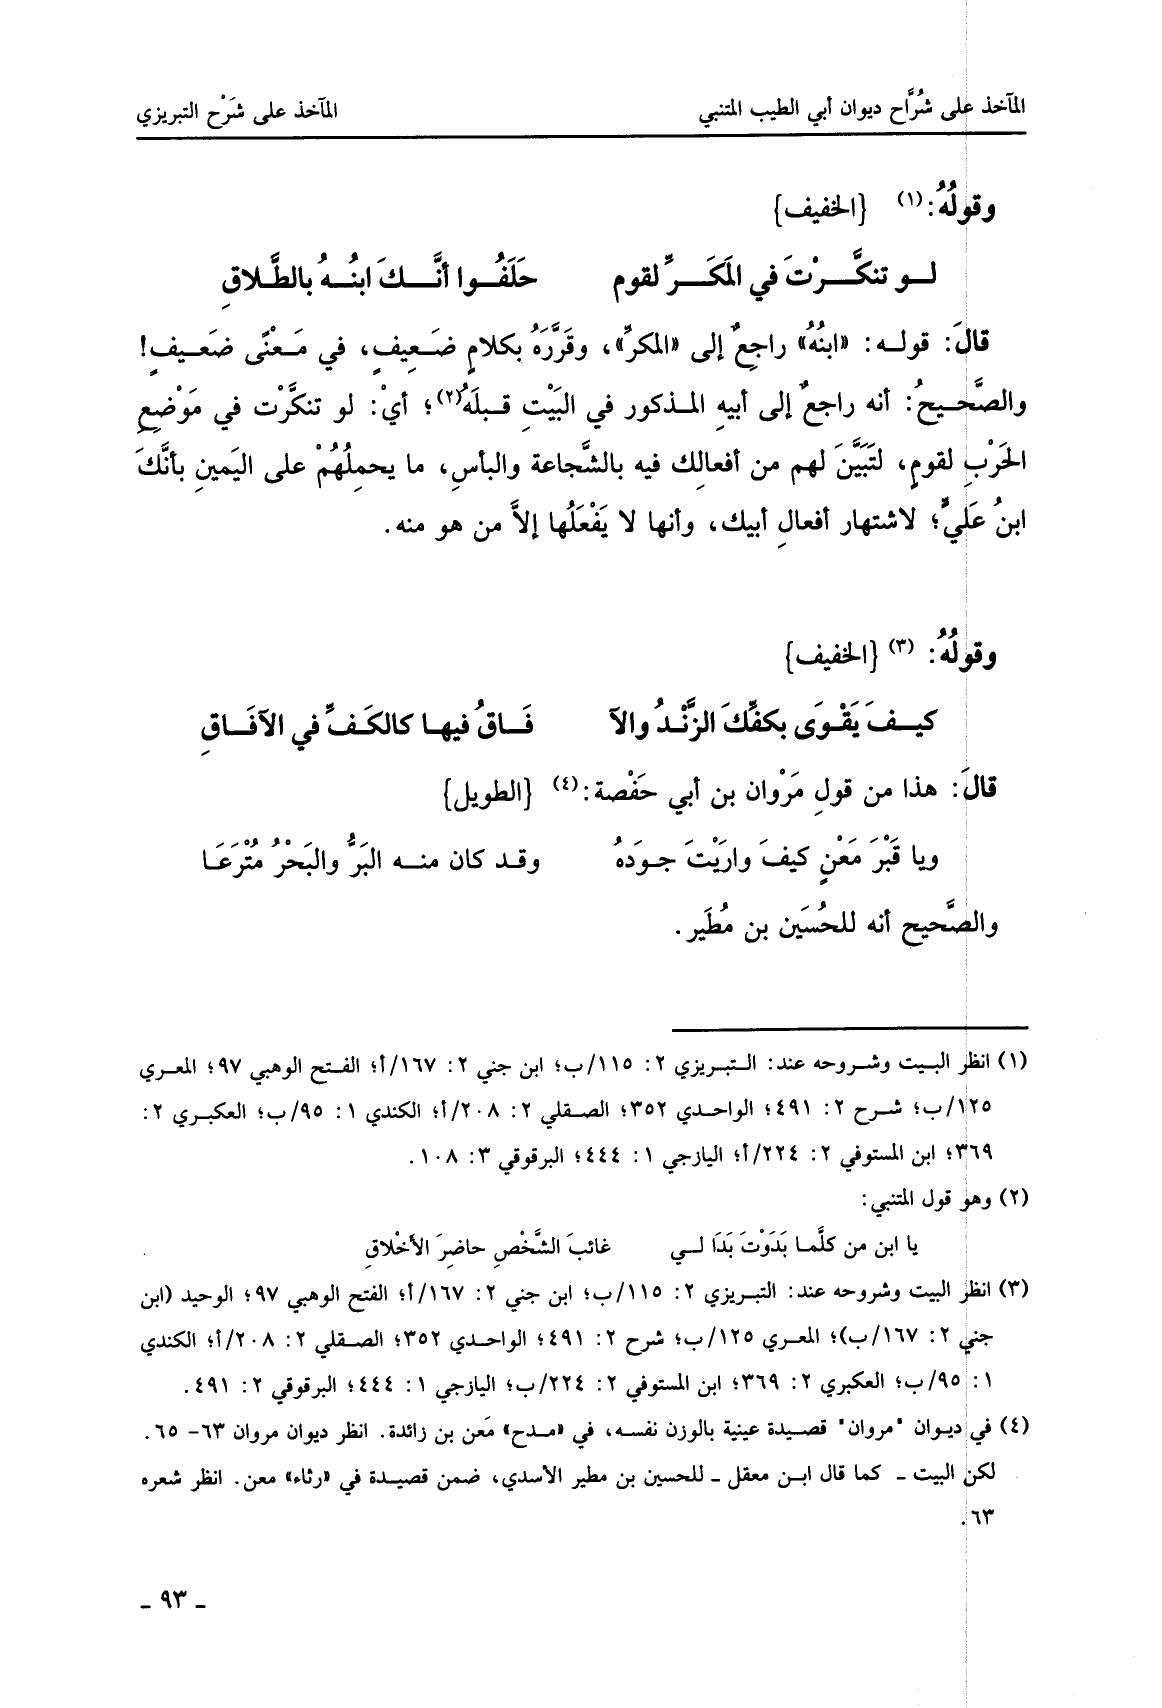 المآخذ على شُرَّاح ديوان أبي الطيب المتنبي المآخذ على شَرْح التبريزي
وقولُهُ: (١) {الخفيف}
لـو تنكَّـرْتَ في المَكَـرِّ لقوم حَلَفُـوا أنَّـكَ ابنُـهُ بالطَّلاقِ
قالَ: قوله: «ابنُهُ» راجِعٌ إلى «المكرِّ»، وقَرَّرَهُ بكلامٍ ضَعِيفٍ، في مَعْنًى ضَعيفٍ!
والصَّحيحُ: أنه راجعٌ إلى أبيهِ المذكور في البَيْتِ قبلَهُ(٢)؛ أيْ: لو تنكَّرْت في مَوْضِعِ
الحَرْبِ لقومٍ، لتَبَيَّنَ لهم من أفعالِك فيه بالشَّجاعة والبأسِ، ما يحملُهُمْ على اليَمينِ بأنَّكَ
ابنُ عَليٍّ؛ لاشتهار أفعالِ أبيك، وأنها لا يَفْعَلُها إلاَّ من هو منه.
وقولُهُ: (٣) {الخفيف}
كيـفَ يَقْوَى بكفِّكَ الزَّنْدُ والآ فَـاقُ فيها كالكَفِّ في الآفَـاقِ
قالَ: هذا من قولِ مَرْوان بن أبي حَفْصة:(٤) {الطويل}
ويا قَبْرَ مَعْنٍ كيفَ وارَيْتَ جودَهُ وقد كان منه البَرُّ والبَحْرُ مُتْرَعَا
والصَّحيح أنه للحُسَين بن مُطَير.
(١) انظر البيت وشروحه عند: التبريزي ٢: ١١٥/ب؛ ابن جني ٢: ١٦٧/أ؛ الفتح الوهبي ٩٧؛ المعري
١٢٥/ب؛ شرح ٢: ٤٩١؛ الواحدي ٣٥٢؛ الصقلي ٢: ٢٠٨/أ؛ الكندي ١: ٩٥/ب؛ العكبري ٢:
٣٦٩؛ ابن المستوفي ٢: ٢٢٤/أ؛ اليازجي ١: ٤٤٤؛ البرقوقي ٣: ١٠٨.
(٢) وهو قول المتنبي:
يا ابن من كلَّما بَدَوْتَ بَدَا لـي غائبَ الشَّخْصِ حاضِرَ الأخْلاقِ
(٣) انظر البيت وشروحه عند: التبريزي ٢: ١١٥/ب؛ ابن جني ٢: ١٦٧/أ؛ الفتح الوهبي ٩٧؛ الوحيد (ابن
جني ٢: ١٦٧/ب)؛ المعري ١٢٥/ب؛ شرح ٢: ٤٩١؛ الواحدي ٣٥٢؛ الصقلي ٢: ٢٠٨/أ؛ الكندي
١: ٩٥/ب؛ العكبري ٢: ٣٦٩؛ ابن المستوفي ٢: ٢٢٤/ب؛ اليازجي ١: ٤٤٤؛ البرقوقي ٢: ٤٩١.
(٤) في ديوان "مروان" قصيدة عينية بالوزن نفسه، في «مدح» مَعن بن زائدة. انظر ديوان مروان ٦٣- ٦٥.
لكن البيت ـ كما قال ابن معقل ـ للحسين بن مطير الأسدي، ضمن قصيدة في «رثاء» معن. انظر شعره
٦٣.
ـ ٩٣ ـ